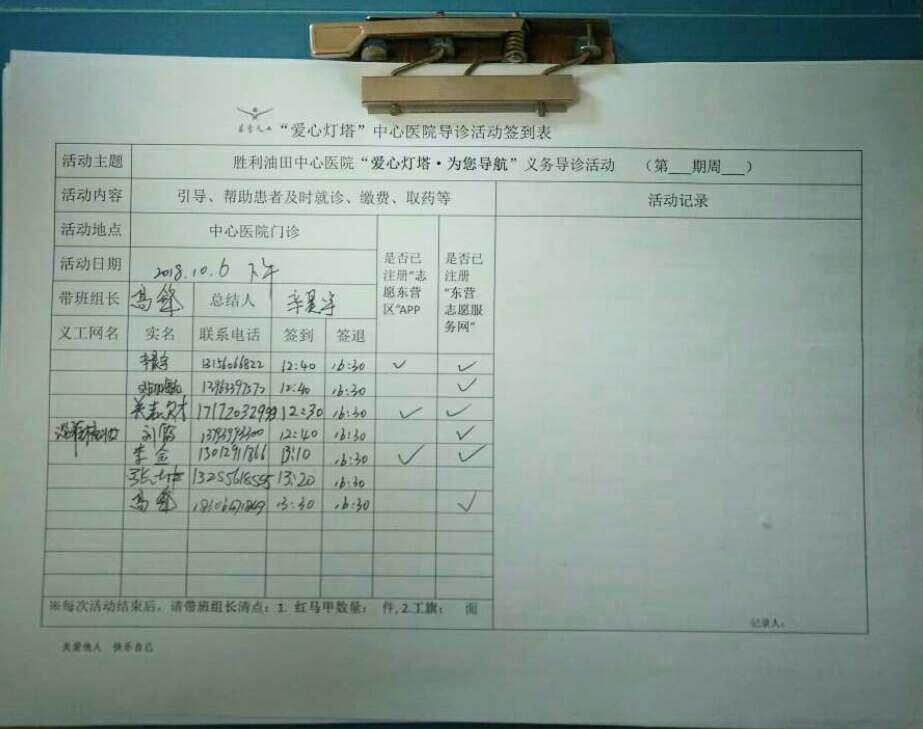 “爱心灯塔”中心医院导诊活动签到表
活动主题 胜利油田中心医院“爱心灯塔·为您导航”义务导诊活动 （第___期周___）
活动内容 引导、帮助患者及时就诊、缴费、取药等 活动记录
活动地点 中心医院门诊 是否已注册“志愿东营区”APP 是否已注册“东营志愿服务网”
活动日期 2018.10.6 下午
带班组长 高锋 总结人
义工网名 实名 联系电话 签到 签退
12:40 16:30 ✓ ✓
12:40 16:30 ✓
12:30 16:30 ✓ ✓
12:40 16:30 ✓
李金 13012911366 13:10 16:30 ✓ ✓
13255618555 13:20 16:30
高锋 13:30 16:30 ✓
※每次活动结束后，请带班组长清点：1. 红马甲数量： 件, 2.工旗： 面
记录人：
关爱他人 快乐自己